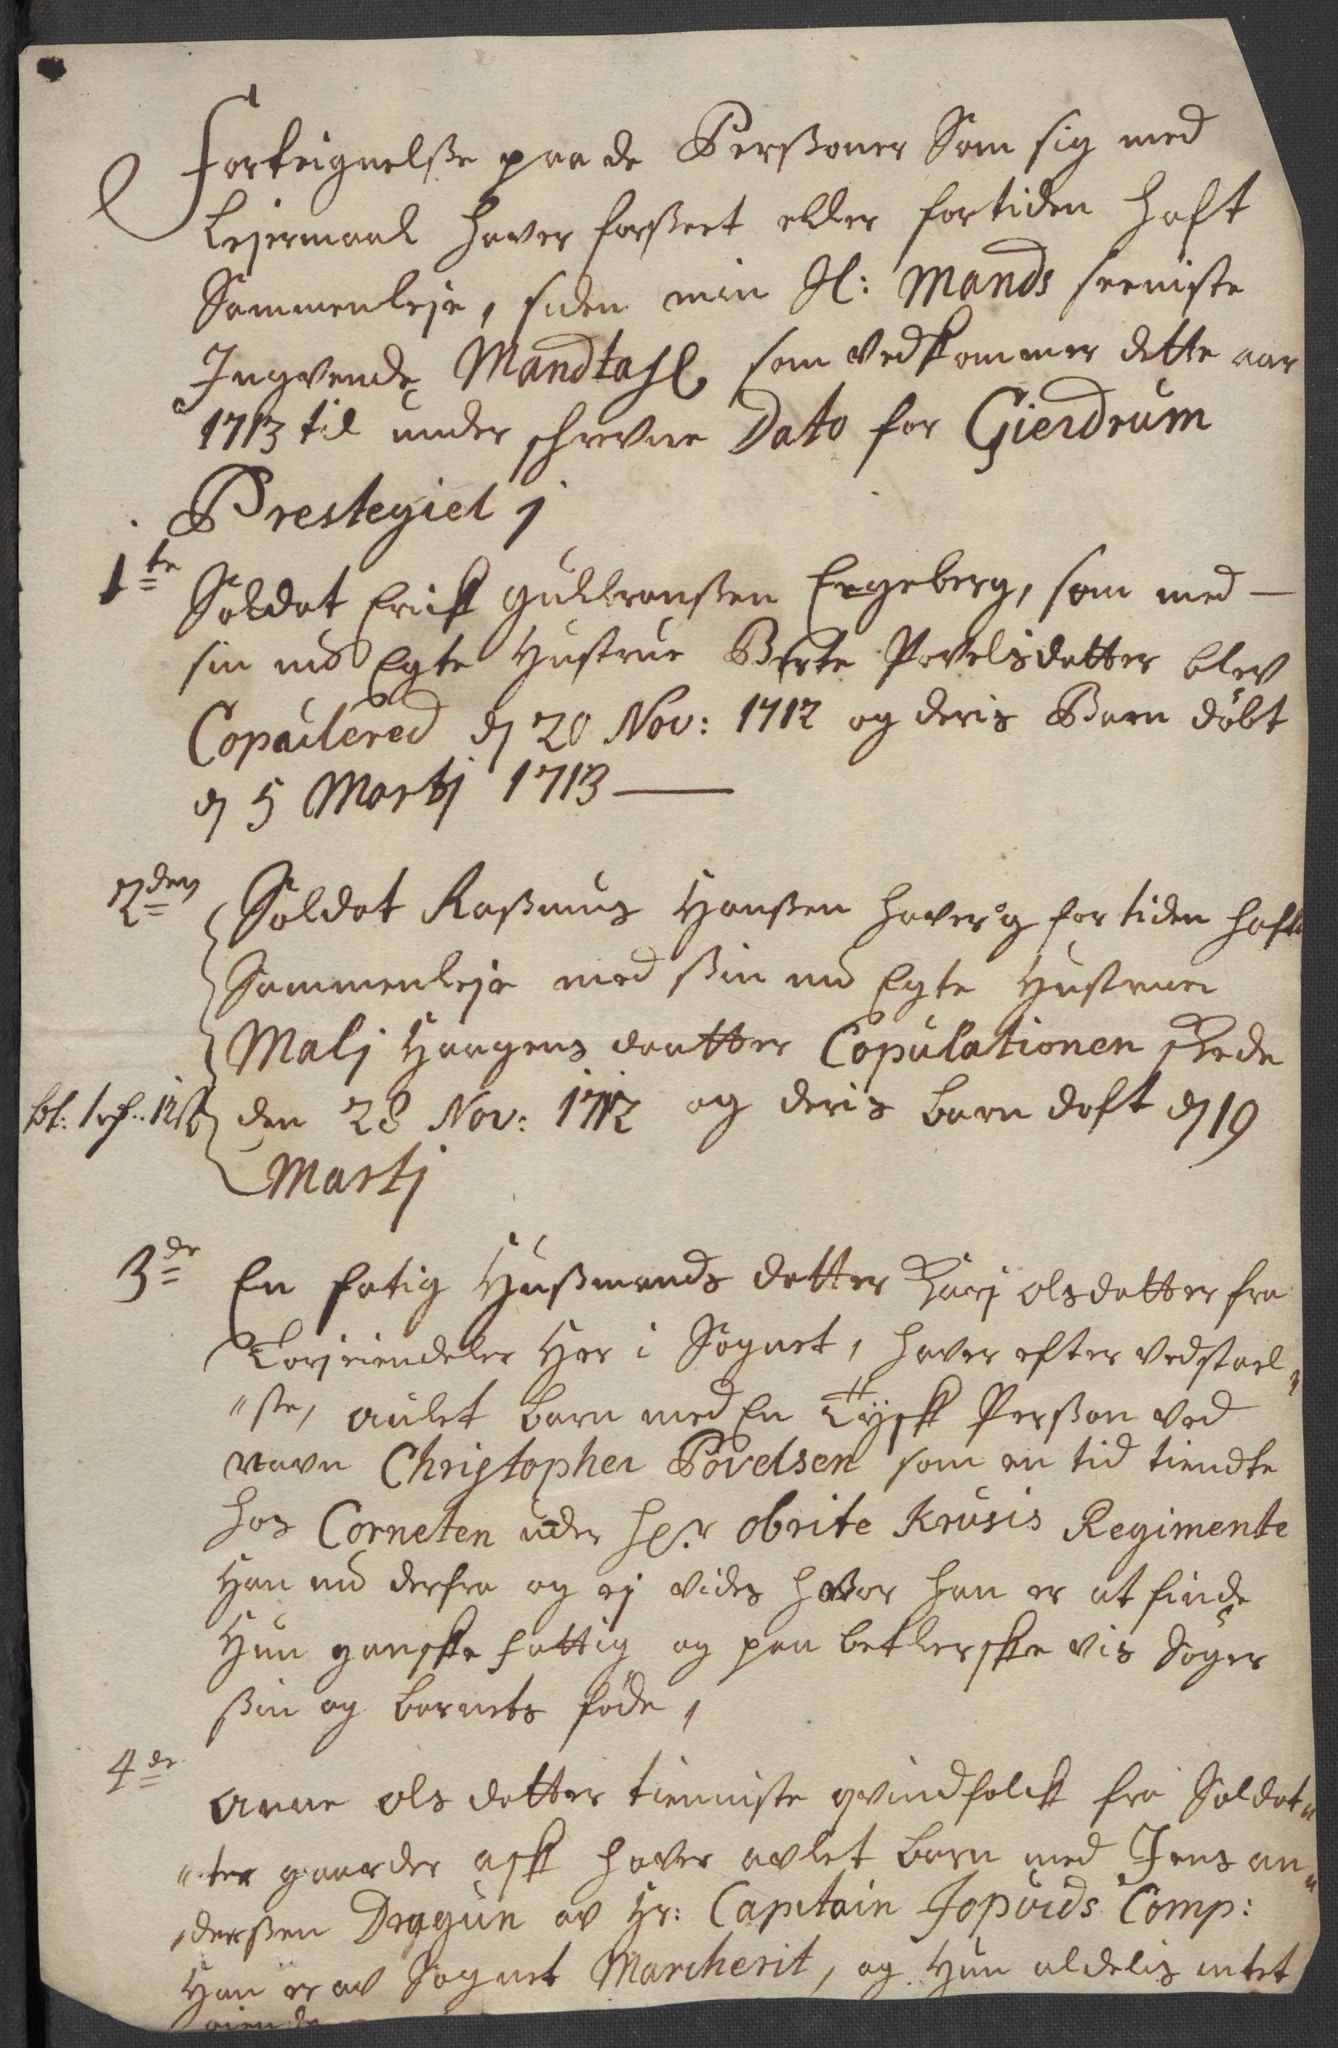 Forteignelße paa de Perßoner Som sig med
Lejermaal haver forßeet eller fortiden haft
Sammenleje, siden min Sl: Mands seeniste
Ingivende Mandtahl som vedkommer dette aar
1713 til under schrevne Dato for Gierdrum
Prestegiel j
1te Soldat Erick Gulbranßen Engeberg, som med —
sin nu Egte Hustrue Berte Povelsdatter blev
Copulered dj 20 Nov: 1712 og deris Barn døbt
dj 5 Martj 1713 —
2den Soldat Raßmus Hanßen haver og for tiden haft
Sammenleje med ßin nu Egte Hustrue
Malj Haagens daatter Copulationen skede
bt: 1 rf: 12 ß den 28 Nov: 1712 og deris barn døft dj 19
Martj
3de En fatig Hußmands datter Karj olsdatter fra
her i Sognet, haver efter vedstael„
„ße, aulet barn med En Tysk Perßon ved
navn Christopher Povelsen som en tid tiendte
hos Corneten under hr obrite Krusis Regimente
Han nu derfra og ej vides hvor han er at finde
Hun ganske fattig og paa betlerske vis Søger
ßin og barnets føde,
4de Anne olsdatter tienniste qvindfolck fra Soldat„
„ter gaarder ask haver avlet barn med Jens an„
„derßen Dragun av Hr: Capitain Comp:
Han er av Sognet Marcherit, og Hun aldelis intet
eiende